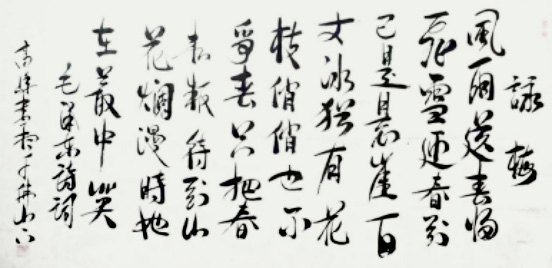 詠梅
風雨送春歸
飛雪迎春到
已是懸崖百
丈冰猶有花
枝俏俏也不
爭春只把春
來報待到山
花爛漫時她
在叢中笑
毛澤東詩詞